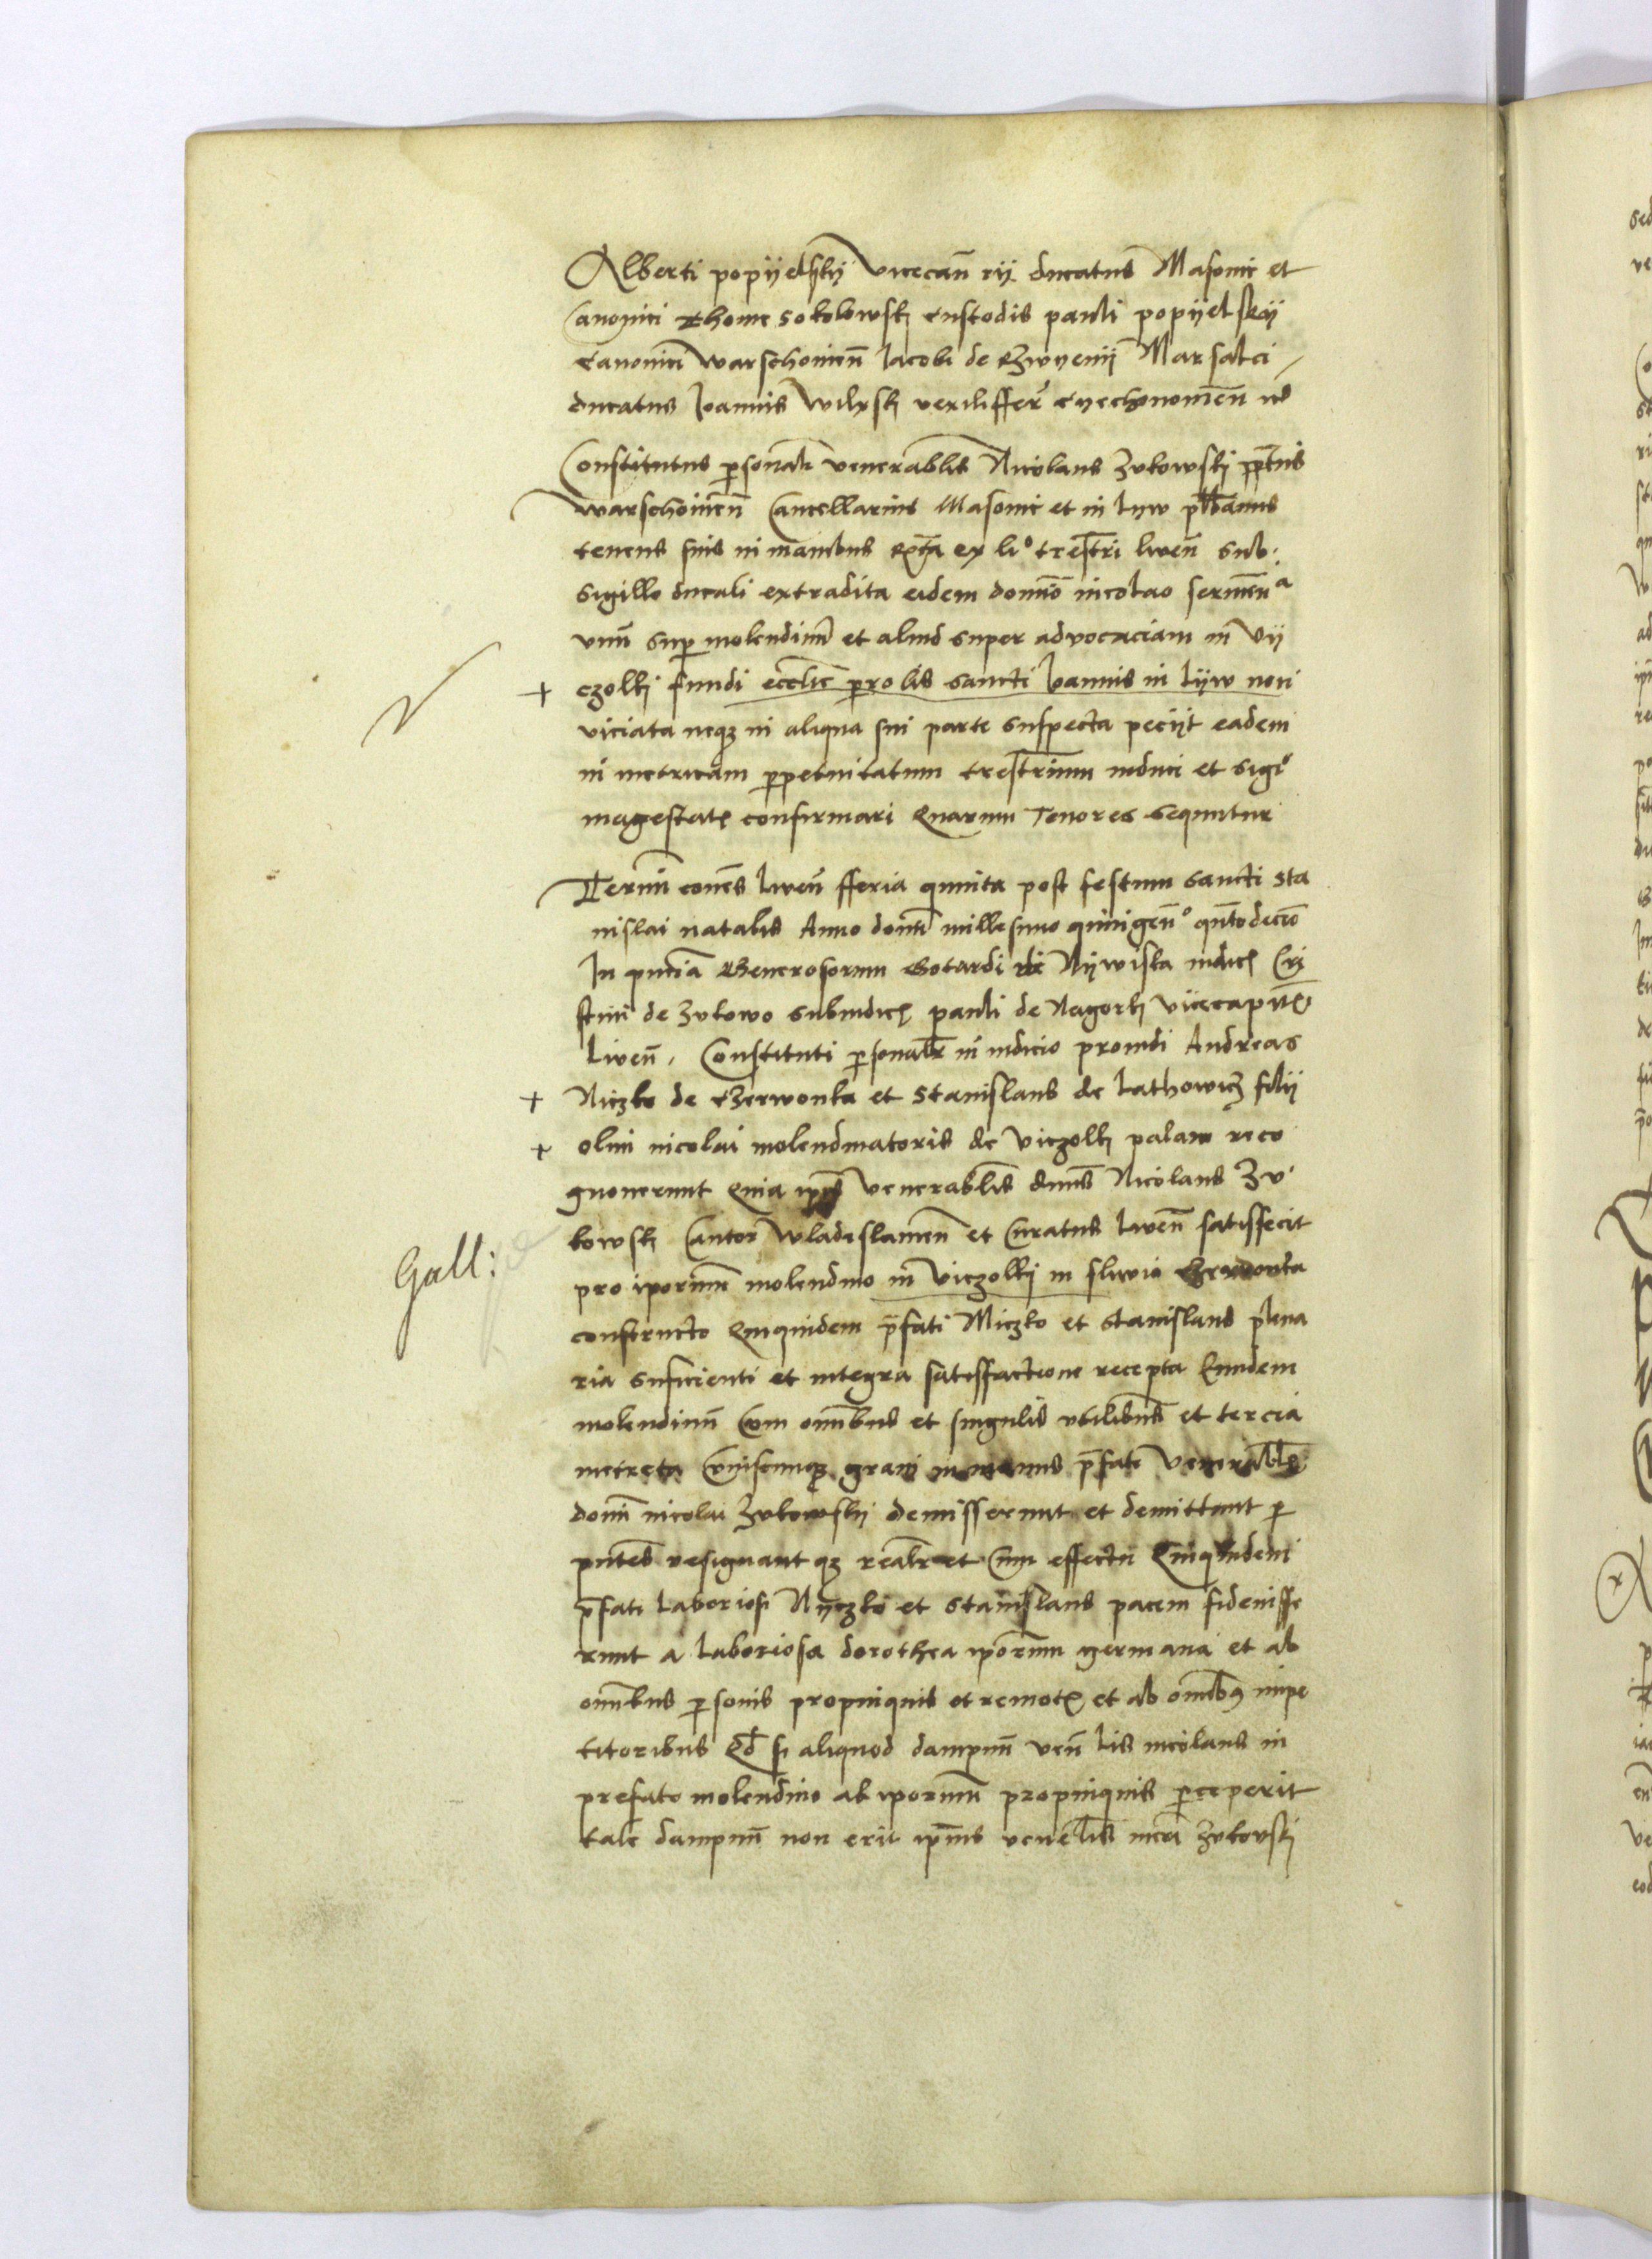 Alberti popijelskij vicecan̄rij ducatus Masonie et
Canonici Thome Sokolowsky custodis pauli popijelskij
Canonici warschowien̄ Jacobi de Czwyenij Marsalci
ducatus Joannis Wilxsky vexilifferi cyechonomen̄
Constitutus personalr venerablis Nicolaus Zukowskj pp̄tus
warschowien̄ Cancellarius Masonie et in Lyw plebanus
tenens suis in manibus exta ex lio trestri liven̄ sub
sigillo ducali extradita eidem domino nicolao sermen̄a
vnū super molendinū et aliud super advocaciam in Vy
+ czolkj fundi ecclīe perrolis sancti Joannis in Lijw non
viciata neqz in aliqua sui parte suspecta peciit eadem
in metricam perpetuitatum trestrium induci et sigo
magestatis confirmari Quarum Tenores sequntur
Termin̄ conēs liven̄ fferia quinta post festum sancti Sta
nislai natalis Anno domī millesimo quingen̄o quītodecīo
In pn̄cia Generosorum Gotardi de Nijwiska iudicis Cri
stini de Zukowo subiudicis pauli de Nagorky vicecapn̄ei
Liven̄. Constituti personalr in iudicio proindi Andreas
+ Niczko de Czerwonka et Stanislaus de Lathowicz filij
+ olim nicolai molendinatoris de viczolky palam reco
gnouerunt Quia ipīs venerablis dnūs Nicolaus Zu
kowsky Cantor Wladislauien̄ et Curatus liven̄ satisfecit
Gall:
pro iporum molendino in viczolkj in fluvio Czerwonka
constructo Quiquidem p̄fati Miczko et Stanislaus plena
ria suficienti et integra satisfactione recepta Eundem
molendinū cum omībus et singulis vtilibus et tercia
metreta cuiuscumqz grani in manus p̄fati venerablis
domī nicolai Zukowskij demisserunt et demittunt per
pn̄tes resignantqz realr et cum effectu Quiquidem
p̄fati Laboriosi Nyczko et Stanislaus pacem fideiusse
runt a laboriosa dorothea iporum germana et ab
omībus personis propinquis et remotis et ab omībus impe
titoribus Qd si aliquod dampnū ven̄lis nicolaus in
prefato molendino ab iporum propinquis perceperit
tale dampnū non erit ipīus venēlis nicōi Zukovskj